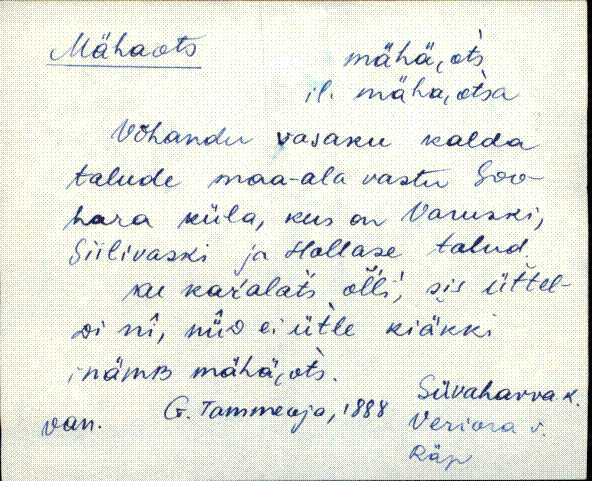 Mähaots
mähä,ot̀s
il. mäha,ot̀sa
Võhandu vasaku kalda
talude maa-ala vastu Soo-
hara küla, kus on Varuski,
Siilivaski ja Hollase talud.
kar̀alat̀s ol̀li, sìs üt̀tel-
di nî, nüü̬d ei üt̀le kiäkki
inämb mähä,ot̀s.
van. G. Tammeoja, 1888
Süvahavva k.
Veriora v.
Räp